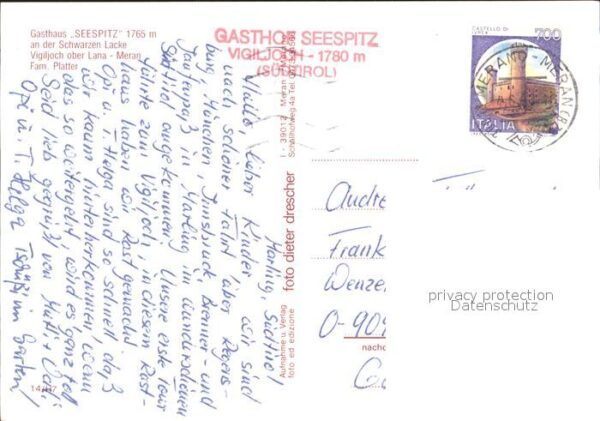 Gasthaus „SEESPITZ" 1765 m
an der Schwarzen Lacke
Vigiljoch ober Lana - Meran
Fam. Platter
GASTHOF SEESPITZ
VIGILJOCH - 1780 m
(SÜDTIROL)
CASTELLO DI
700
ITALIA
MERANO - MERAN
Marling, Südtirol
Hallo, liebe Kinder, wir sind
nach schöner Fahrt über Regens-
burg, München, Innsbruck, Brenner- und
Jaufenpaß in Marling im wunderschönen
Südtirol angekommen. Unsere erste Tour
führte zum Vigiljoch, in diesem Rast-
haus haben wir Rast gemacht
Opi u. T. Helga sind so schnell, daß
wir kaum hinterherkommen, wenn
das so weitergeht, wird es ganz toll
Seid lieb gegrüßt von Mutti + Vati
Opi u. T. Helga
I - 39012 Meran
foto dieter drescher
Aufnahme u. Verlag
foto ed edizione
Andre
Frank
Wenze
O-909
nacho
privacy protection
Datenschutz